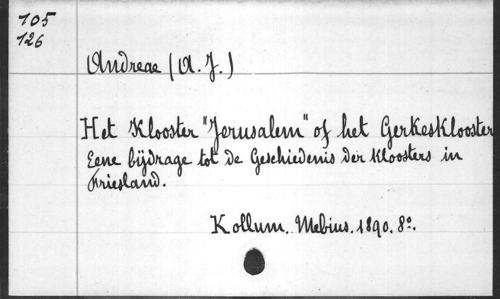 105
126
Andreae (A. J.)
Het Klooster "Jerusalem" of het Gerkesklooster
Eene bijdrage tot de Geschiedenis der Kloosters in
Friesland.
Kollum. Mebius. 1890. 8º.